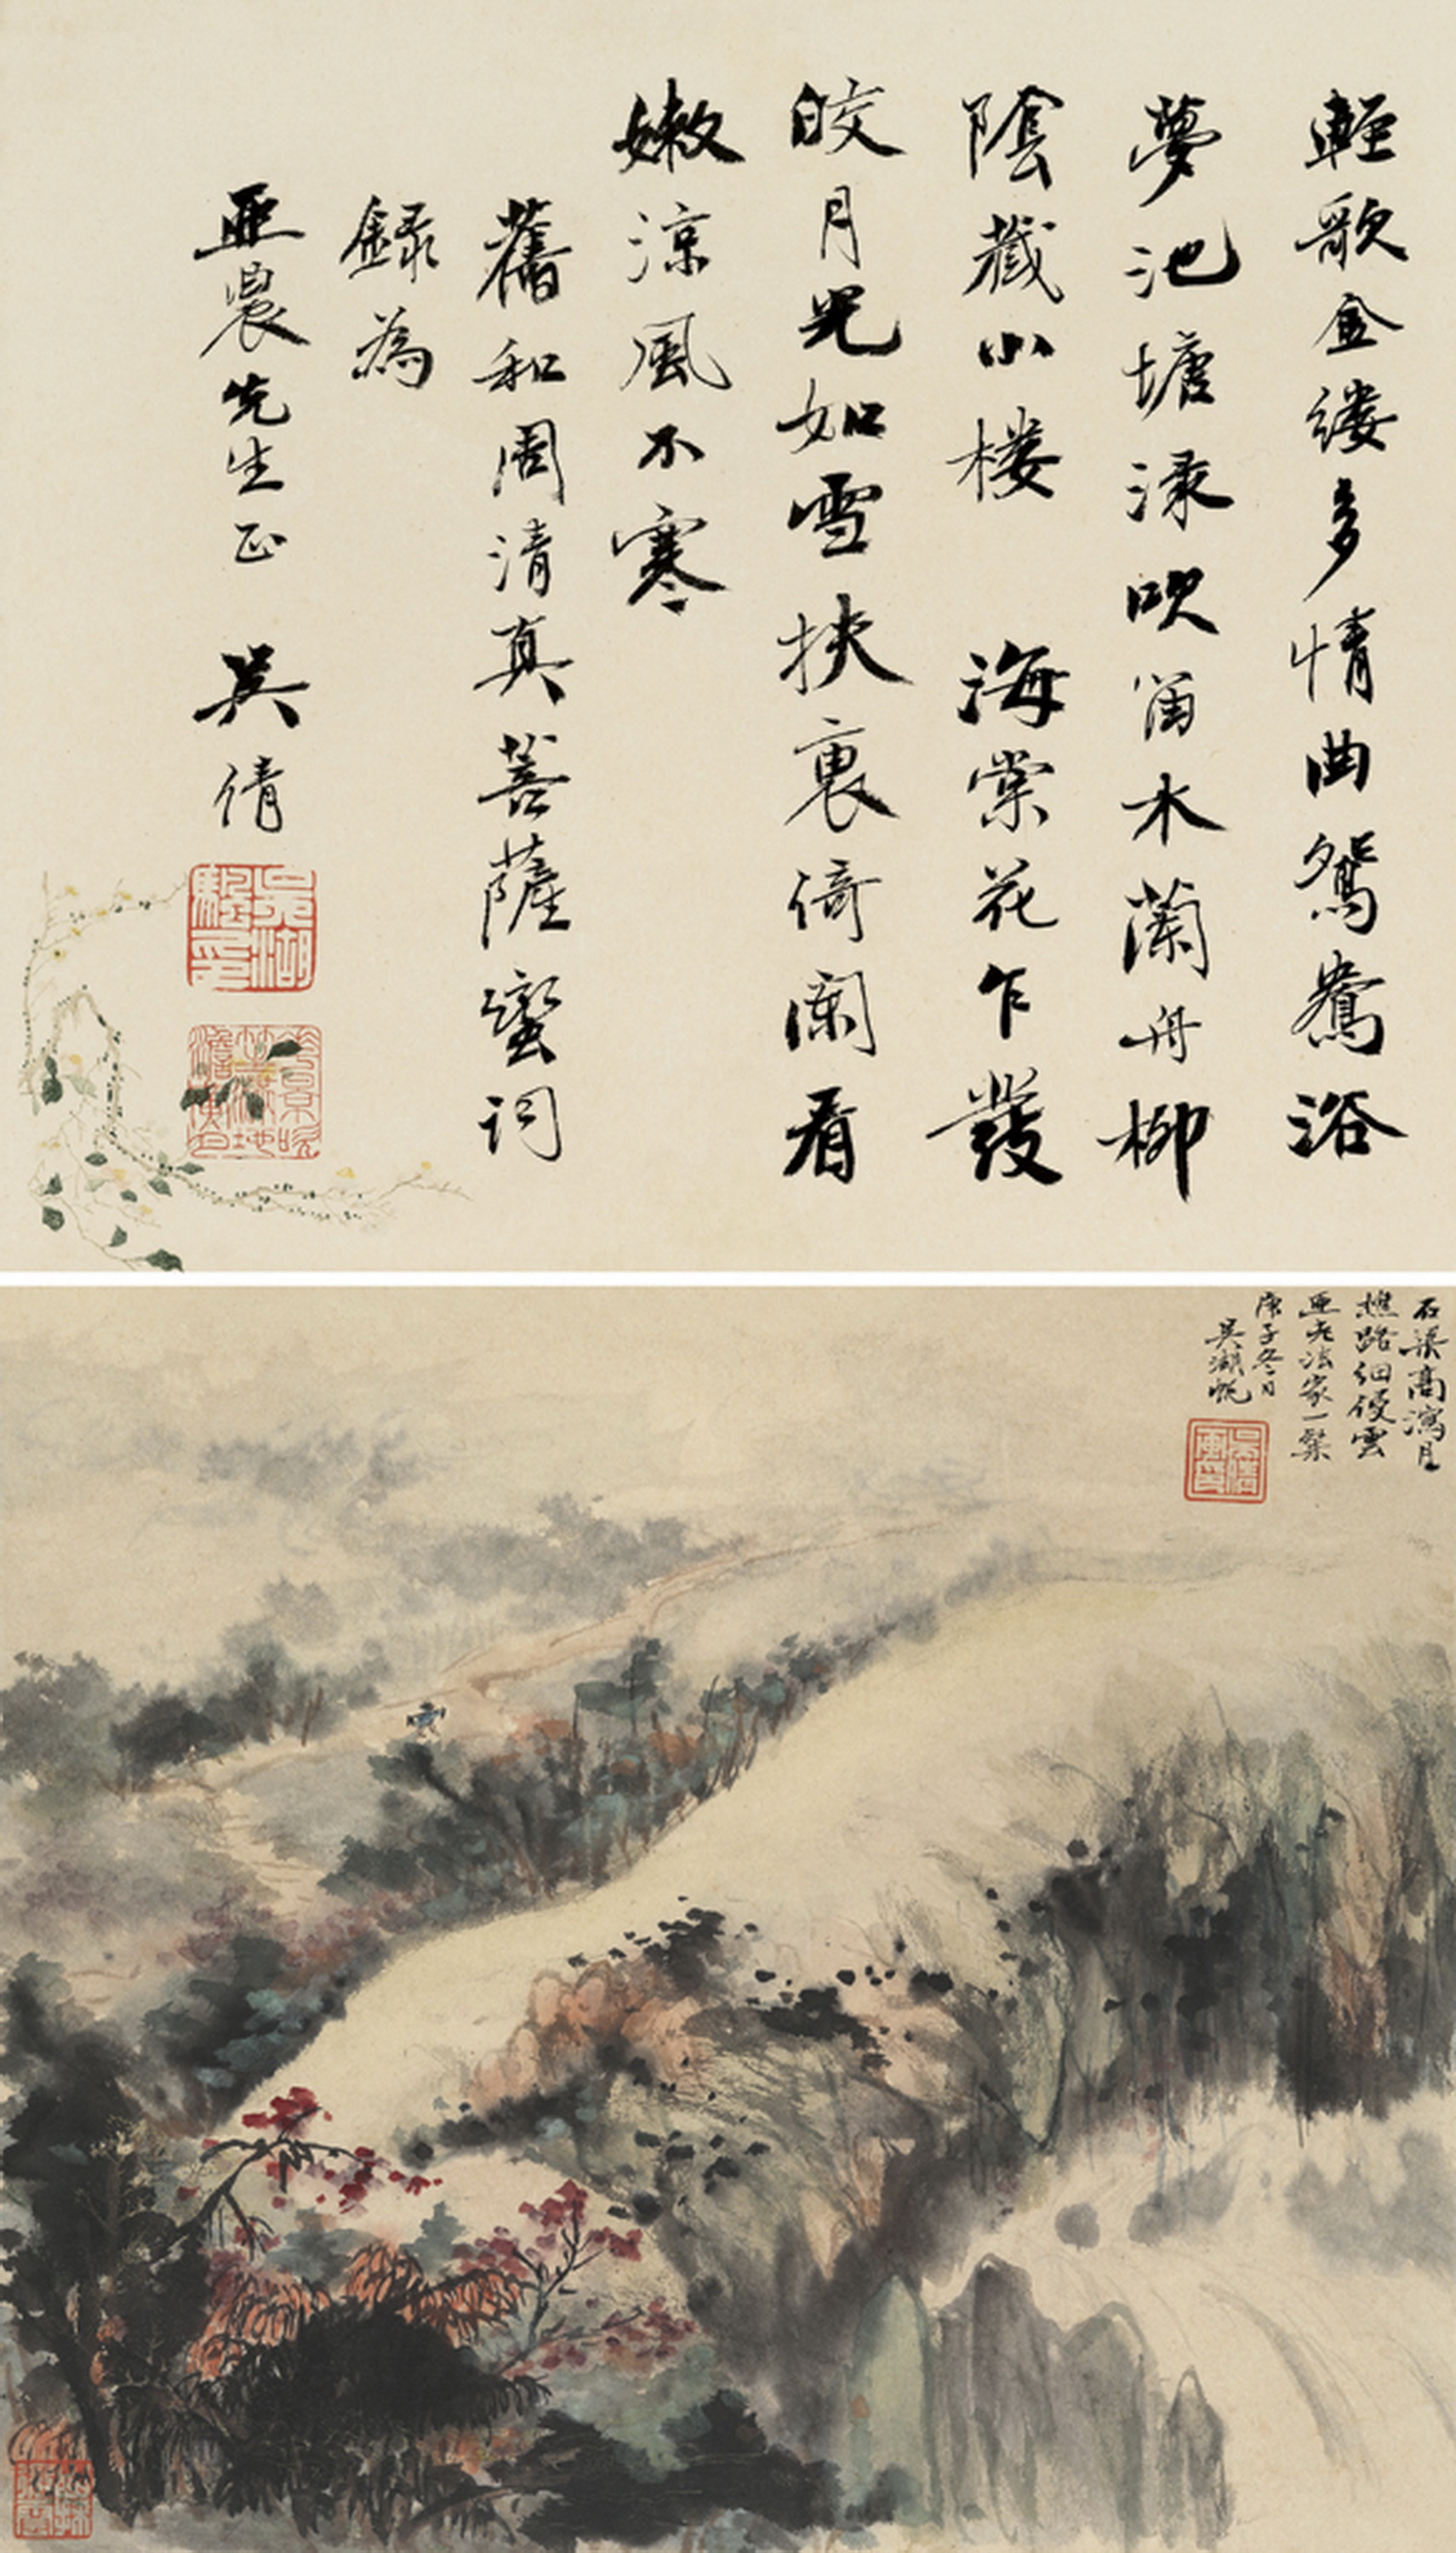 輕歌金縷多情曲鴛鴦浴
夢池塘淥吹笛木蘭舟柳
陰藏小樓 海棠花乍發
皎月光如雪扶裏倚闌看
嫩涼風不寒
舊和周清真菩薩蠻詞
錄為
亞農先生正 吳倩
吳湖騐印
石梁高瀉月
樵路細侵雲
亞老法家一粲
庚子冬日
吳湖帆